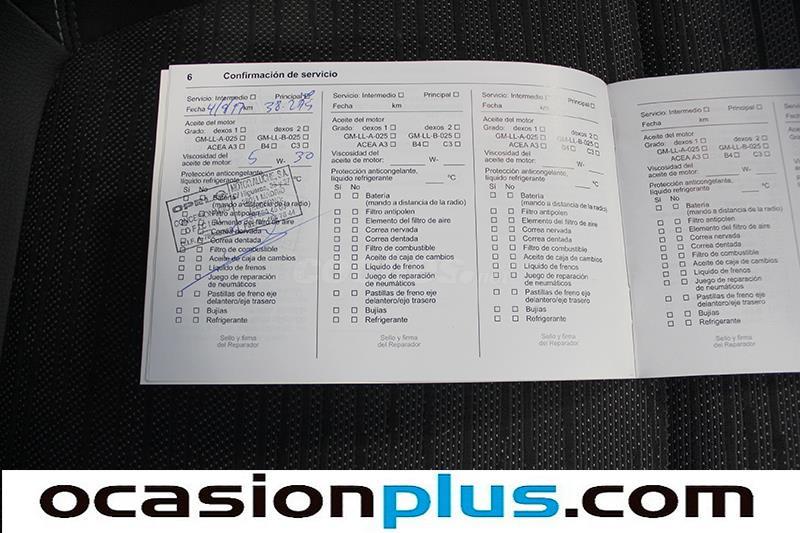 6 Confirmación de servicio
Servicio: Intermedio Principal
Fecha 4/9/17 km 38.295
Aceite del motor
Grado: dexos 1 dexos 2
GM-LL-A-025 GM-LL-B-025
ACEA A3 B4 C3
Viscosidad del
aceite de motor: 5 W- 30
Protección anticongelante,
líquido refrigerante °C
Sí No
Batería
(mando a distancia de la radio)
Filtro antipolen
Elemento del filtro de aire
Correa nervada
Correa dentada
Filtro de combustible
Aceite de caja de cambios
Líquido de frenos
Juego de reparación
de neumáticos
Pastillas de freno eje
delantero/eje trasero
Bujías
Refrigerante
Sello y firma
del Reparador
Servicio: Intermedio Principal
Fecha km
Aceite del motor
Grado: dexos 1 dexos 2
GM-LL-A-025 GM-LL-B-025
ACEA A3 B4 C3
Viscosidad del
aceite de motor: W-
Protección anticongelante,
líquido refrigerante °C
Sí No
Batería
(mando a distancia de la radio)
Filtro antipolen
Elemento del filtro de aire
Correa nervada
Correa dentada
Filtro de combustible
Aceite de caja de cambios
Líquido de frenos
Juego de reparación
de neumáticos
Pastillas de freno eje
delantero/eje trasero
Bujías
Refrigerante
Sello y firma
del Reparador
Servicio: Intermedio Principal
Fecha km
Aceite del motor
Grado: dexos 1 dexos 2
GM-LL-A-025 GM-LL-B-025
ACEA A3 B4 C3
Viscosidad del
aceite de motor: W-
Protección anticongelante,
líquido refrigerante °C
Sí No
Batería
(mando a distancia de la radio)
Filtro antipolen
Elemento del filtro de aire
Correa nervada
Correa dentada
Filtro de combustible
Aceite de caja de cambios
Líquido de frenos
Juego de reparación
de neumáticos
Pastillas de freno eje
delantero/eje trasero
Bujías
Refrigerante
Sello y firma
del Reparador
Servicio: Intermedio Principal
Fecha km
Aceite del motor
Grado: dexos 1 dexos 2
GM-LL-A-025 GM-LL-B-025
ACEA A3 B4 C3
Viscosidad del
aceite de motor: W-
Protección anticongelante,
líquido refrigerante °C
Sí No
Batería
(mando a distancia de la radio)
Filtro antipolen
Elemento del filtro de aire
Correa nervada
Correa dentada
Filtro de combustible
Aceite de caja de cambios
Líquido de frenos
Juego de reparación
de neumáticos
Pastillas de freno eje
delantero/eje trasero
Bujías
Refrigerante
Sello y firma
del Reparador
ocasionplus.com